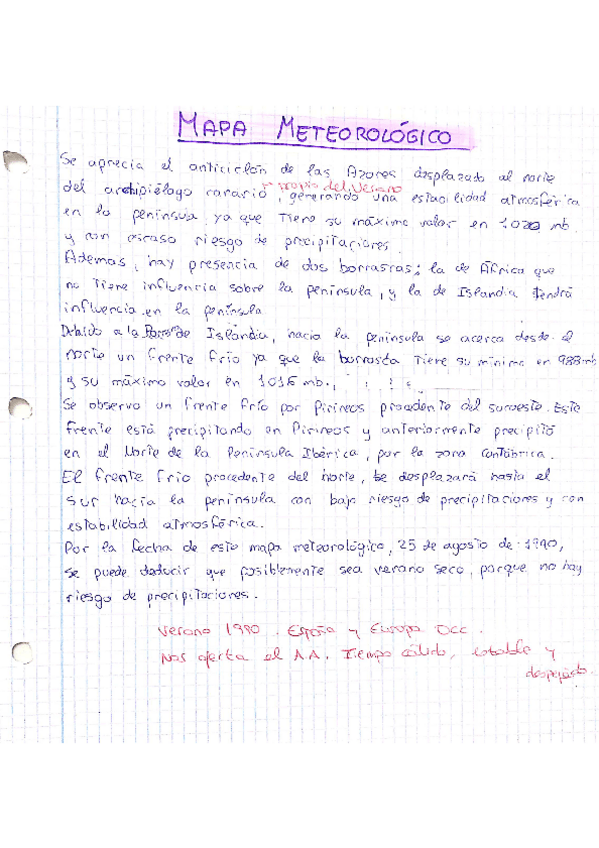 MAPA METEOROLÓGICO
Se aprecia el anticiclón de las Azores desplazado al norte
del archipiélago canario, propio del verano, generando una estabilidad atmosférica
en la península, ya que tiene su máximo valor en 1020 mb
y con escaso riesgo de precipitaciones.
Ademas, hay presencia de dos borrascas; la de África que
no tiene influencia sobre la península, y la de Islandia tendrá
influencia en la península
Debido a la Borr. de Islandia, hacia la península se acerca desde el
norte un frente frío ya que la borrasca tiene su mínimo en 988 mb
y su máximo valor en 1016 mb.
Se observa un frente frío por Pirineos procedente del suroeste. Este
frente está precipitando en Pirineos y anteriormente precipitó
en el Norte de la Península Ibérica, por la zona Cantábrica.
El frente frío procedente del norte, se desplazará hasta el
sur hacia la península con bajo riesgo de precipitaciones y con
estabilidad atmosférica.
Por la fecha de este mapa meteorológico, 25 de agosto de 1990,
se puede deducir que posiblemente sea verano seco, porque no hay
riesgo de precipitaciones.
Verano 1990. España y Europa Occ.
Nos afecta el AA. Tiempo cálido, estable y
despejado.